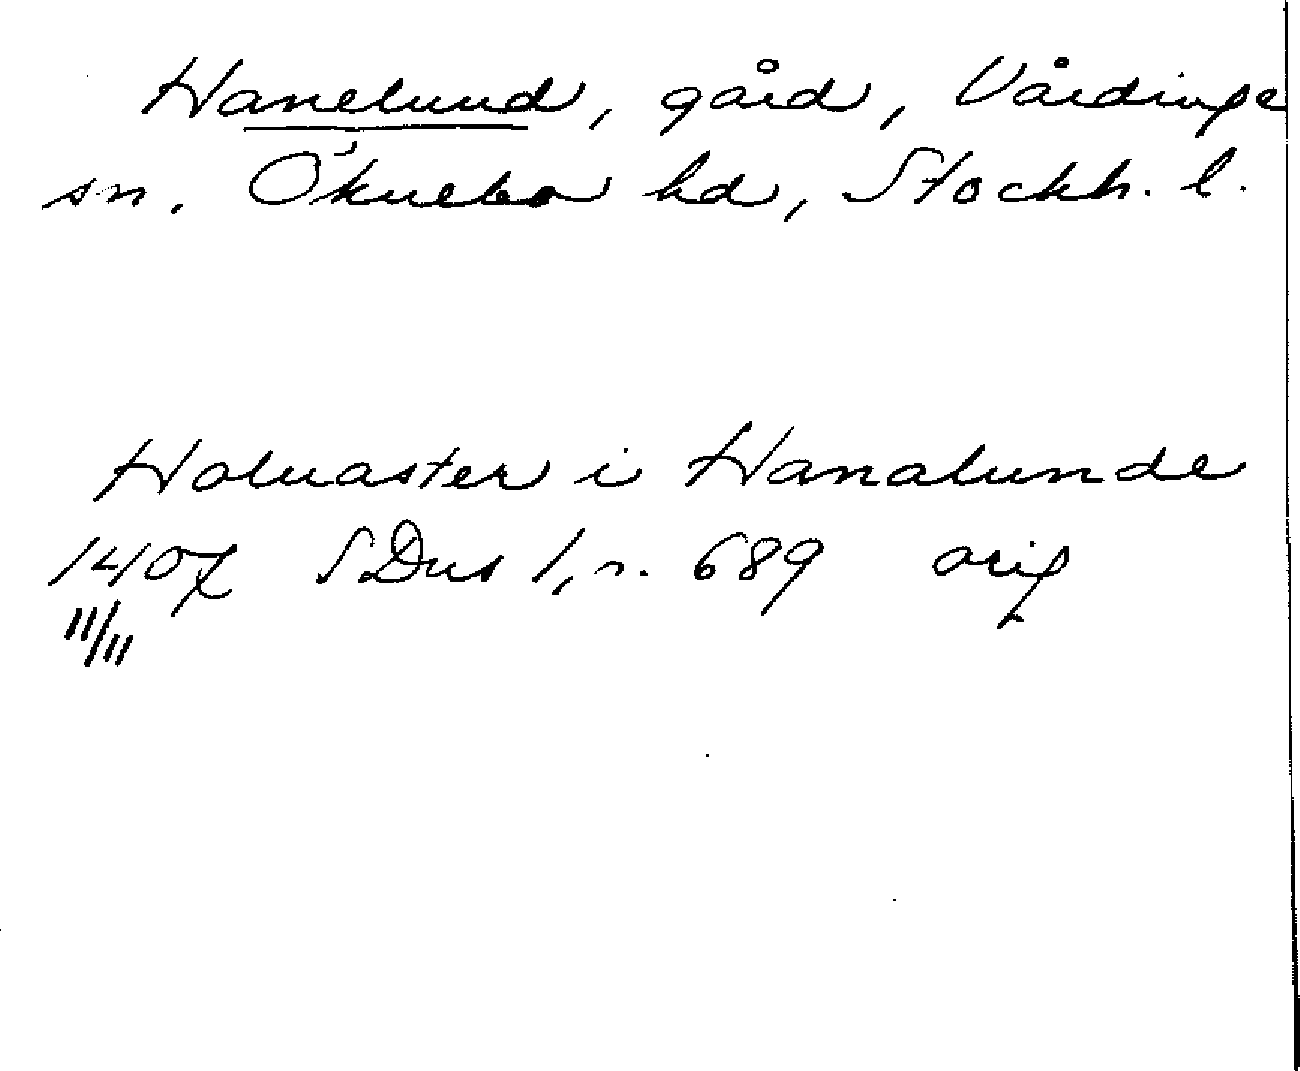 Hanelund, gård, Vårdinge
sn. Öknebo hd, Stockh. l.
Holuaster i Hanalunde
1407 SDns 1, n. 689 orig
11/11